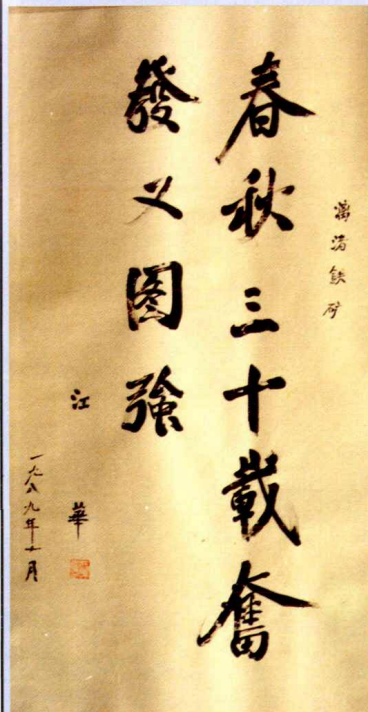 漓渚鉄矿
春秋三十載奮
發又图強
江華
一九八九年十月